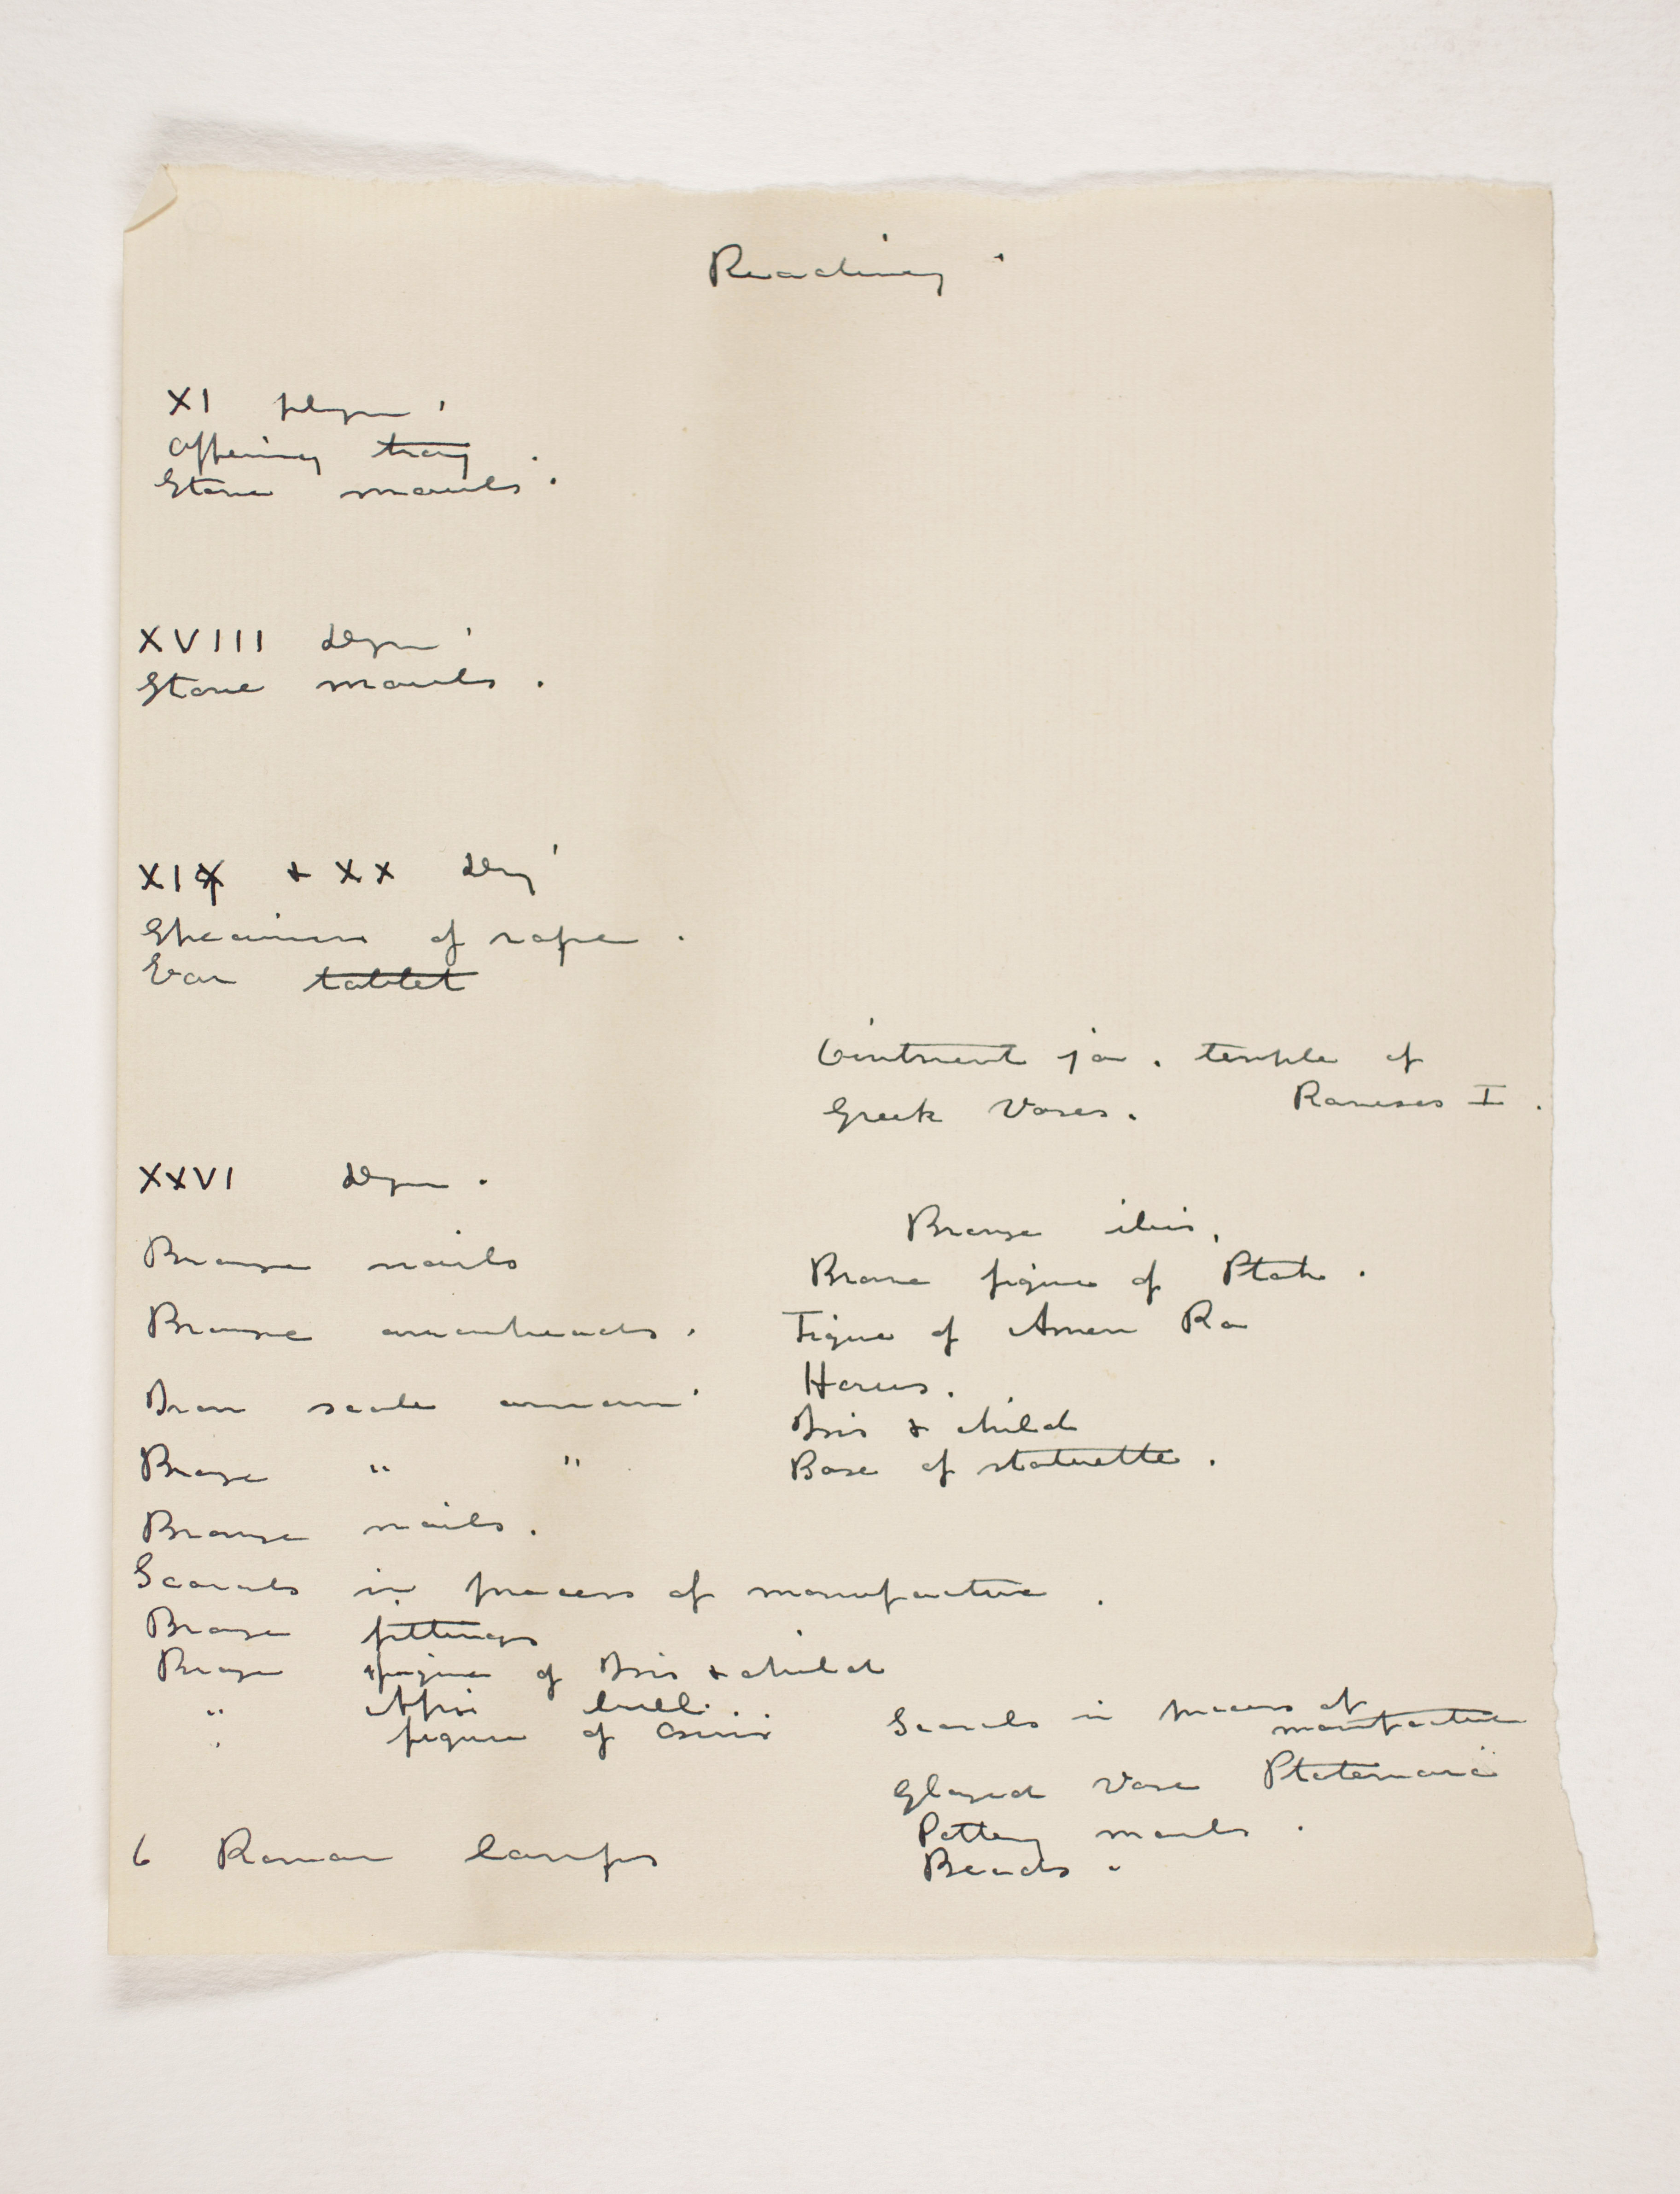 Reading.
XI Dyn.
Offering tray.
Stone mauls.
XVIII Dyn.
Stone mauls.
XIX + XX Dy
Specimens of rope.
Ear tablet
Ointment jar. temple of
Rameses I.
Greek Vases.
XXVI Dyn.
Bronze nails
Bronze arrowheads.
Iron scale armour
Bronze " "
Bronze nails.
Scarabs in process of manufacture.
Bronze fittings
Bronze figure of Isis + child
" Apis bull.
" figure of Osiris
6 Roman lamps
Bronze ibis,
Bronze figure of Ptah.
Figure of Amen Ra
Horus.
Isis & child
Base of statuette.
Scarabs in process of
manufacture
Glazed Vase Ptolemaic
Pottery moulds.
Beads.